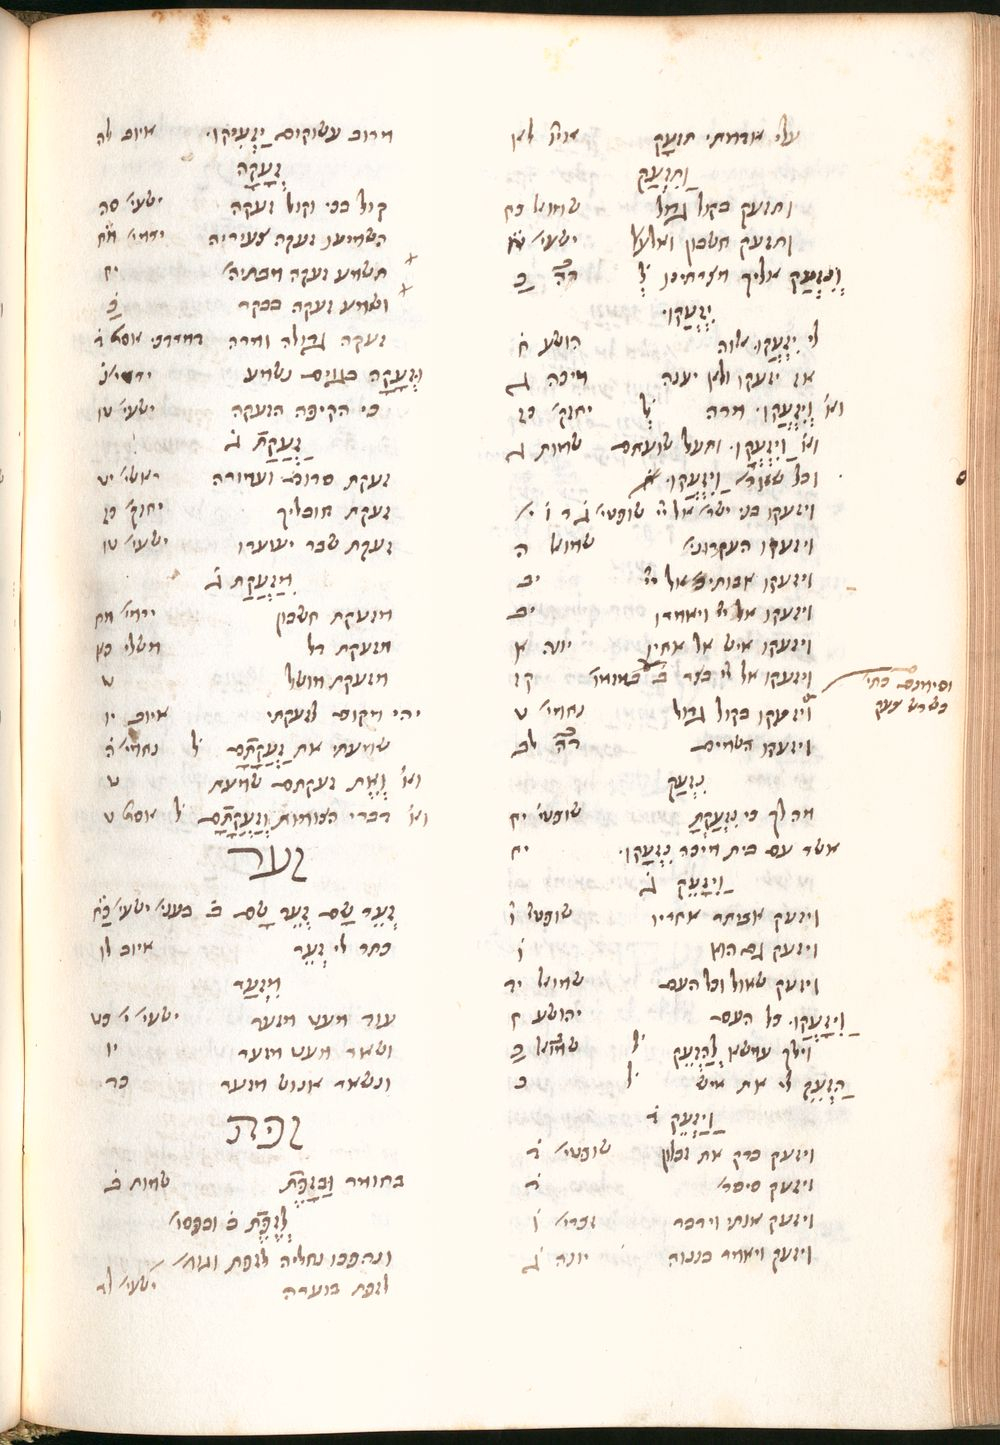 עלי אדמתי תזעק איוב לא
וַתִּזְעַק
ותזעק בקול גדול שמואל כח
ותזעק חשבון ואלעלא ישעי׳ טו
וְנִזְעַק אליך מצרתינו ל׳ דה ב
יִזְעֲקוּ
לי יִזְעֲקוּ אלוה הושע ח
אז יזעקו ולא יענה מיכה ג
וא׳ וְיִזְעֲקוּ מרה ל׳ יחזק׳ כז
וא׳ וַיִּזְעָקוּ ותעל שועתם שמות ב
וכל וַיִּזְעֲקוּ
ויזעקו בני ישראל אל יי שופטי׳ ג ו י
ויזעקו העקרוני׳ שמואל ה
ויזעקו אבותיכם אל יי יב
ויזעקו אל יי ויאמרו יב
ויזעקו איש אל אלהיו יונה א
ויזעקו אל יי בצר קז
וסימנם כתי׳
בשרש צעק
ויזעקו בקול גדול נחמי׳ ט
ויזעקו השמים דה לב
נִזְעַק
מה לך כי נִזְעָקְתָּ שופטי׳ יח
אשר עם בית מיכה נִזְעֲקוּ יח
וַיִּזָּעֵק ג
ויזעק אביעזר אחריו שופטי׳ ו
ויזעק גם הוא ו
ויזעק שאול וכל העם שמואל יד
וַיִּזָּעֲקוּ כל העם יהושע ח
וילך עמשא לְהַזְעִיק ל׳ שמואל כ
הַזְעֶק לי את איש ל׳ כ
וַיַּזְעֵק ד
ויזעק ברק את זבלון שופטי׳ ד
ויזעק סיסר׳ ד
ויזעק אותי וידבר זכרי׳ ו
ויזעק ויאמר בנינוה יונה ג
מרוב עשוקים יַזְעִיקוּ איוב לה
זְעָקָה
קול בכי וקול זעקה ישעי׳ סה
השמיעו זעקה צעיריה ירמי׳ מח
תשמע זעקה מבתיה׳ יח
ושמע זעקה בבקר כ
זעקה גדולה ומרה במרדכי אסת׳ ד
וְזַעֲקָה בגוים נשמע ירמי׳ נ
כי הקיפה הזעקה ישעי׳ טו
זַעֲקַת ג
זעקת סדום ועמורה בראשי׳ יח
זעקת חובליך יחזק׳ כז
זעקת שבר יעוערו ישעי׳ טו
מִזַּעֲקַת ג
מזעקת חשבון ירמי׳ מח
מזעקת דל משלי כא
מזעקת מושל ט
יהי מקום לזעקתי איוב יו
שמעתי את זַעֲקָתָם ל׳ נחמי׳ ה
וא׳ וְאֶת זעקתם שמעת ט
וא׳ דברי הצומות וְזַעֲקָתָם ל׳ אסת׳ ט
זער
זְעֵיר שָׁם זְעֵיר שָׁם ב בעני׳ ישעי׳ כח
כתר לי זְעֵיר איוב לו
מִזְעַר
עוד מעט מזער ישעי׳ י כט
ושאר מעט מזער יו
ונשאר אנוש מזער כד
זפת
בחומר וּבַזָּפֶת שמות ב
לְזֶפֶת ב ובפסו׳
ונהפכו נחליה לזפת וגו׳
לזפת בוערה ישעי׳ לד